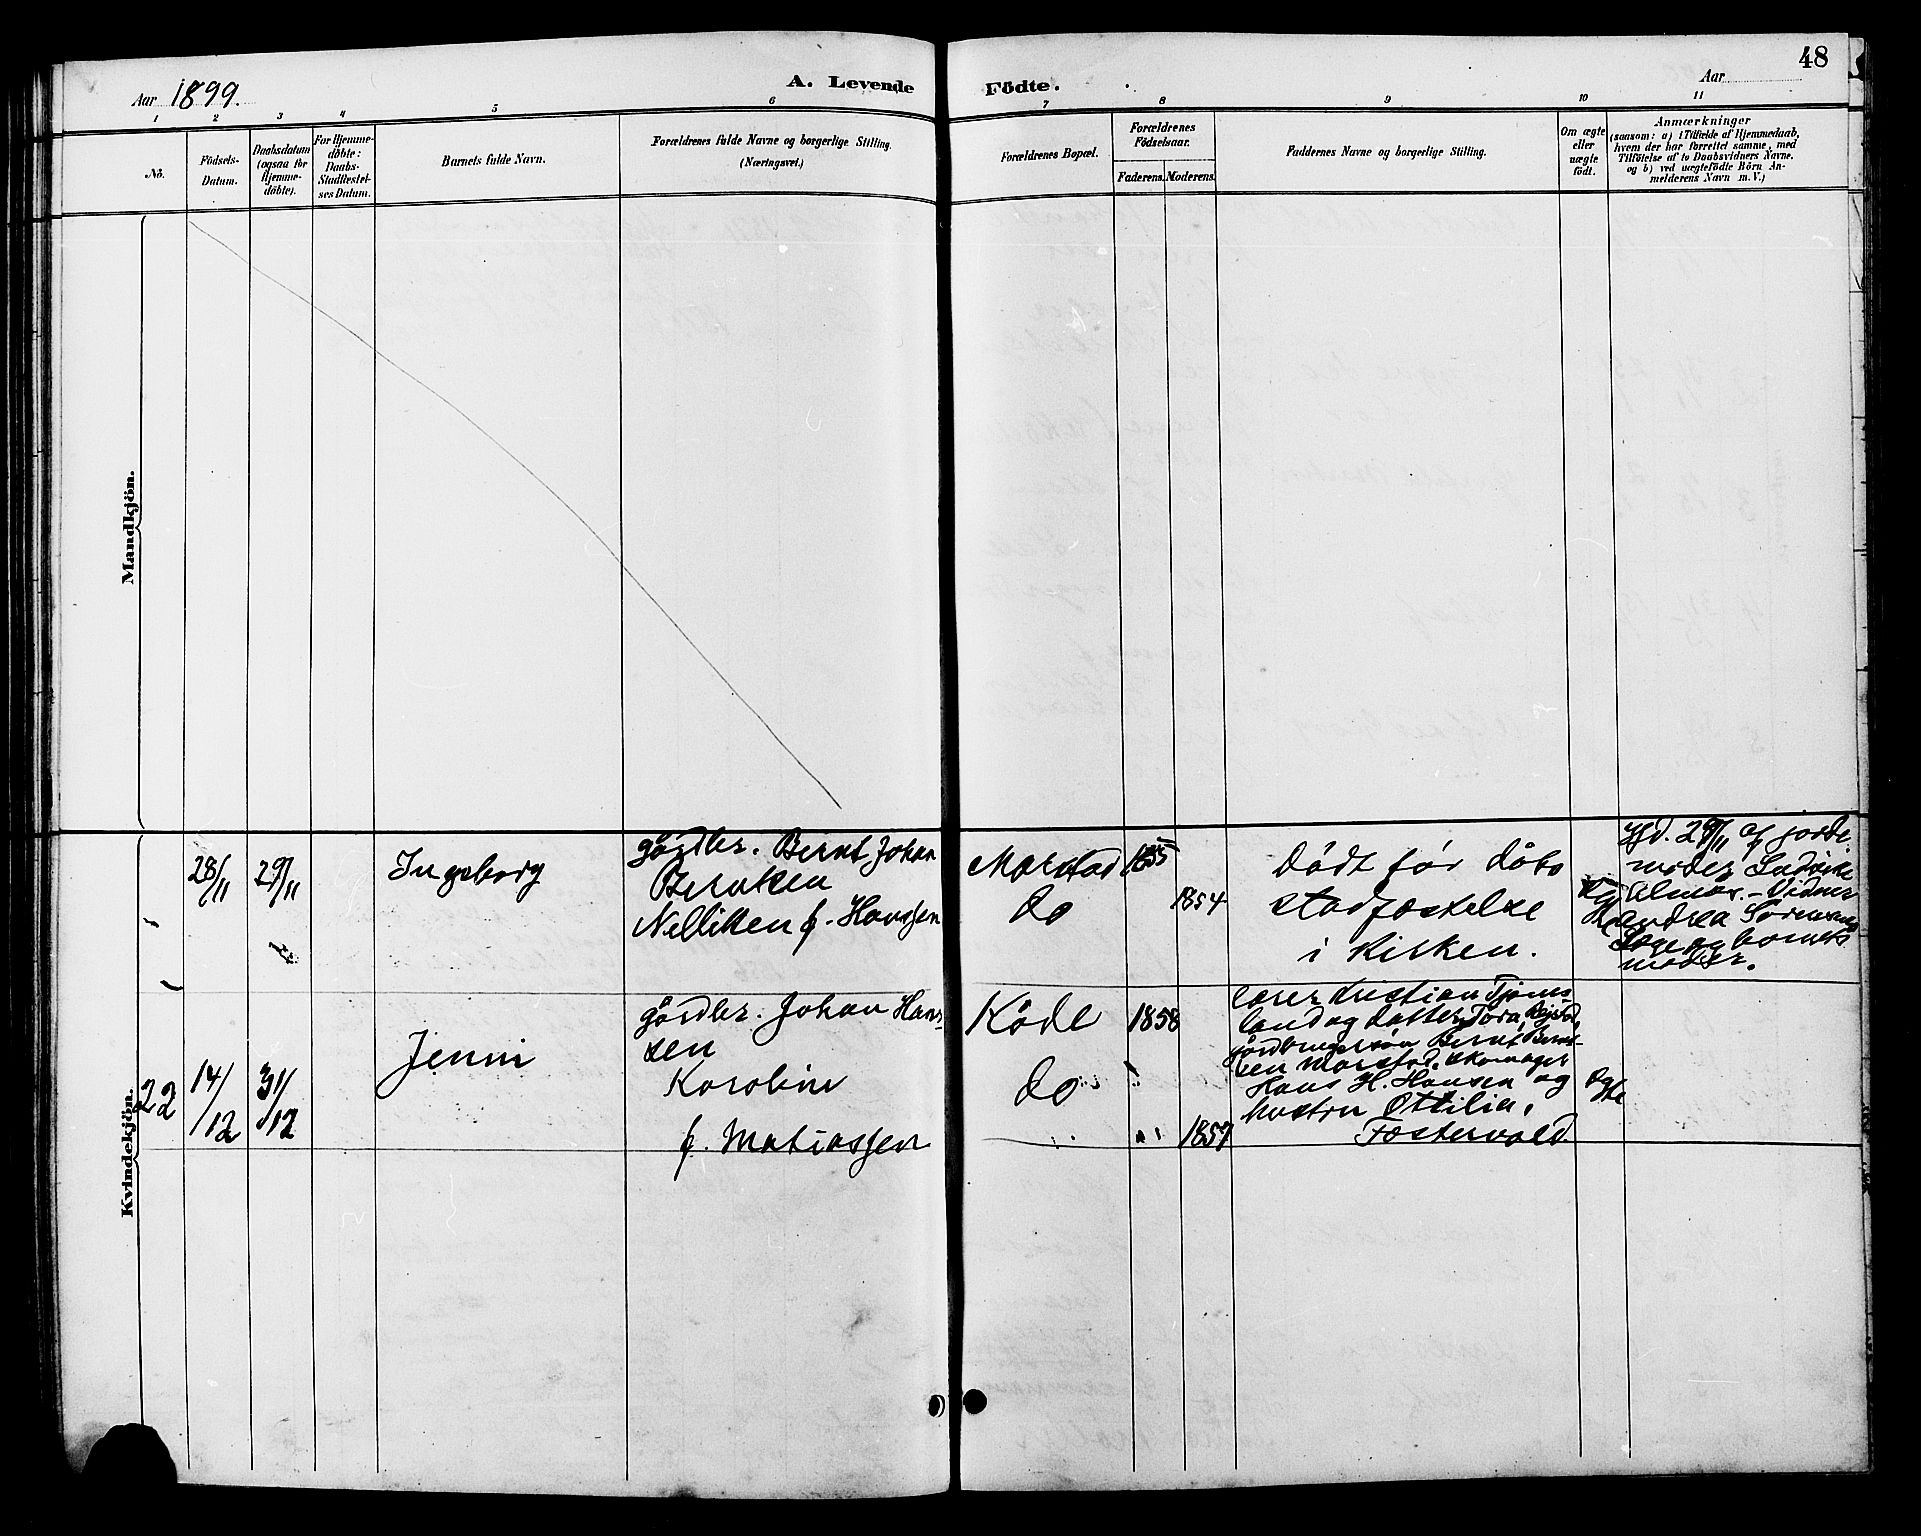 48
Aar 1899.
A. Levende Födte.
Aar
1 2 3 4 5 6 7 8 9 10 11
No.
Födsels-
Datum.
Daabsdatum
(ogsaa for
Hjemme-
döbte).
For Hjemme-
döbte:
Daabs-
Stadfæstel-
ses Datum.
Barnets fulde Navn.
Forældrenes fulde Navne og borgerlige Stilling.
(Næringsvei.)
Forældrenes Bopæl.
Forældrenes
Födselsaar.
Faderens.
Moderens.
Faddernes Navne og borgerlige Stilling.
Om ægte
eller
uægte
födt.
Anmærkninger
(saasom: a) i Tilfælde af Hjemmedaab,
hvem der har forrettet samme, med
Tilföielse af to Daabsvidners Navne,
og b) ved uægtefödte Börn An-
melderens Navn m. V.)
Mandkjön.
Kvindekjön.
28/11
29/11
Ingeborg
gårdbr. Bernt Johan
Berntsen
Nellikken f. Hanssen
Marstad
do
1855
1854
Dødt før dåbs
stadfæstelse
i kirken.
Hjd. 29/11 af jorde-
moder
Vidner
Andrea Sørensen
og barnets
moder.
22
14/12
31/12
Jenni
gårdbr. Johan Hans-
sen
Karoline
f. Matiassen
Køde
do
1858
1857
lærer Kristian Tjøms-
land og datter Tora,
Bernt Bernt-
sen Marstad, skomager
Hans H. Hansen og
hustru Ottilia,
Fostervold
ægte